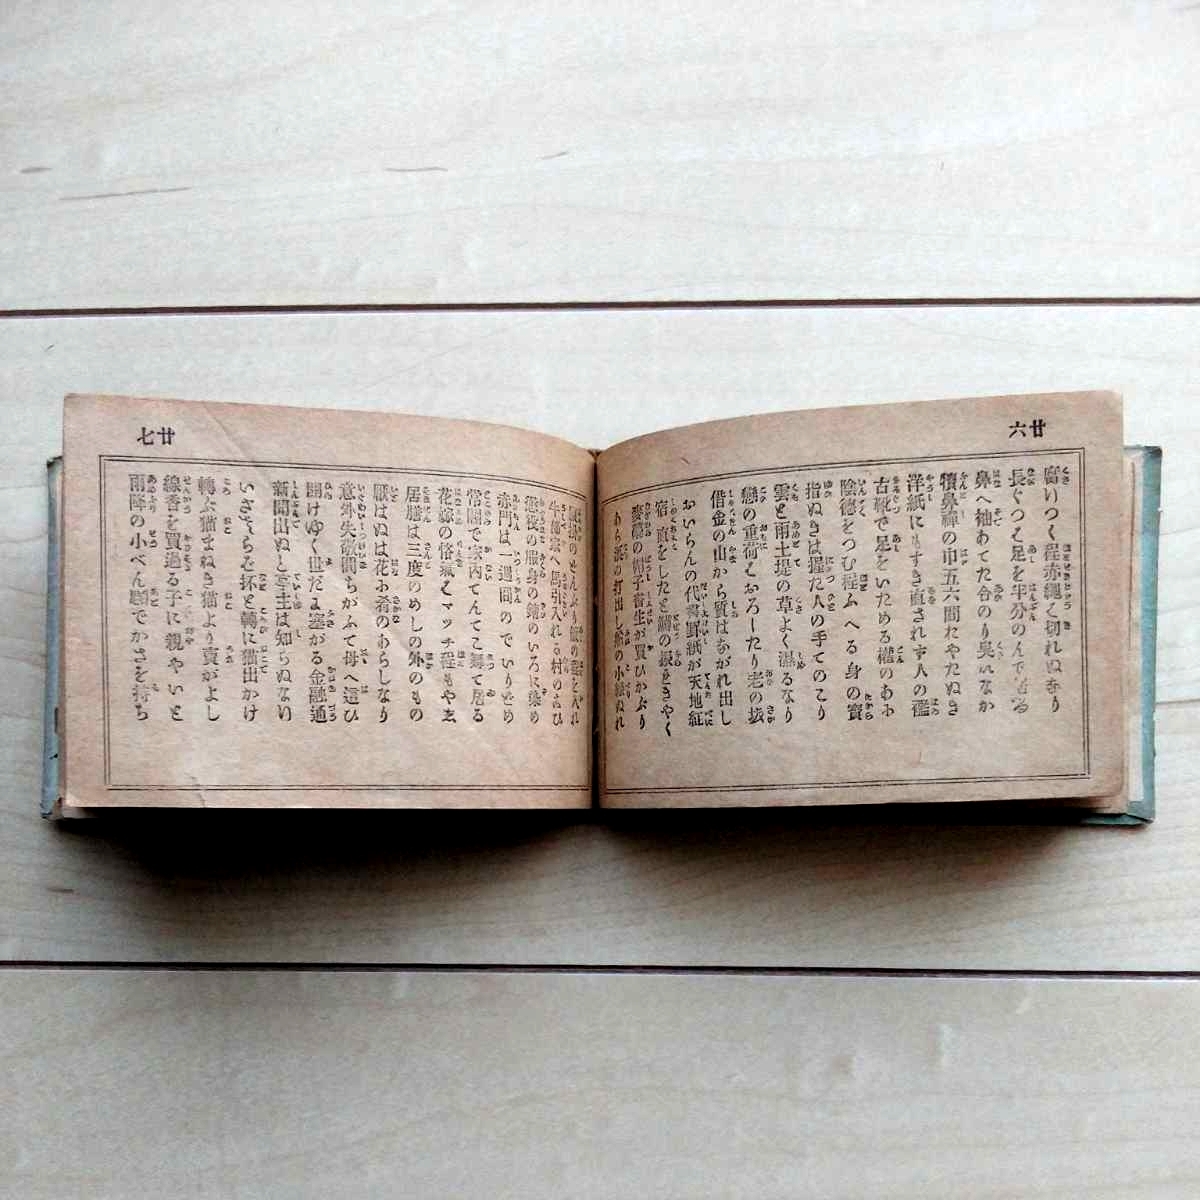 廿六
腐りつく程赤縄く切れぬなり
長ぐつを足を半分のんで居る
鼻へ袖あてた合のり臭いなか
犢鼻褌の巾五六間たやたぬき
洋紙にもすき直されす人の襤
古靴で足をいためる權のあふ
陰徳をつむ程ふへる身の寳
指ぬきは握た人の手てのこり
雲と雨土堤の草よく濕るなり
戀の重荷をおろしたり老の坂
借金の山から質はながれ出し
おいらんの代書罫紙が天地紅
宿直をしたと猫の狼をきやく
麥藁の帽子書生が買ひかぶり
あら浪の打出し船の小縁ぬれ
廿七
牛鍋家へ馬引入れる村の
懲役の服身の錆のいろに染め
赤門は一週間のでいりとめ
常閣で家内てんてこ舞て居る
花嫁の悋氣はマッチ程もやゑ
居膳は三度のめしの外のもの
厭はぬは花ふ肴のあらしなり
意外失敬間ちがふて母へ這ひ
開けゆく世だに塞がる金融通
新聞出ぬと亭主は知らぬない
いさくらを杯と轉に猫出かけ
轉ぶ猫まねき猫より賣がよし
線香を買過る子に親やいと
雨降の小べん願でかさを持ち